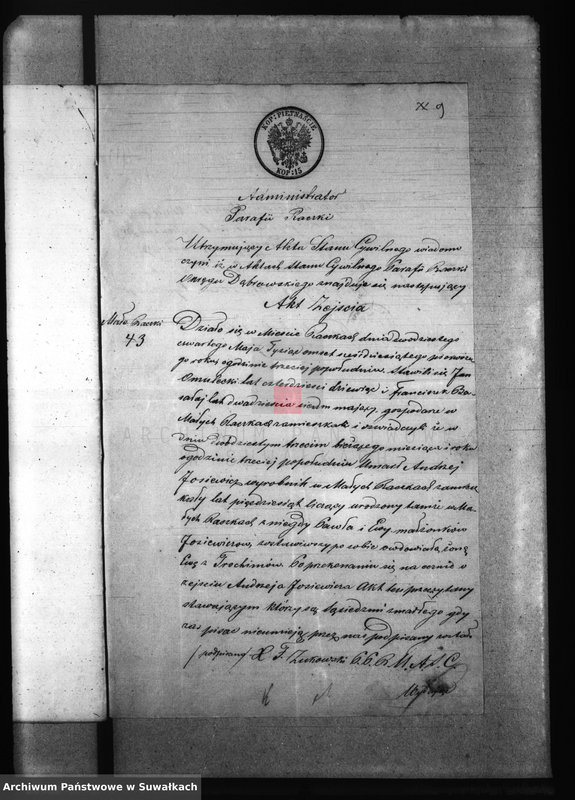 9
KOP: PIĘTNAŚCIE
KOP: 15
Administrator
Parafii Raczki
Utrzymujący Akta Stanu Cywilnego wiadomo
czyni iż w Aktach Stanu Cywilnego Parafii Raczki
Okręgu Dąbrowskiego znajduje się następujący
Akt Zejścia
Małe Raczki
43
Działo się w Mieście Raczkach dnia dwudziestego
czwartego Maja Tysiąc ośmset sześćdziesiątego pierwsze
go roku, o godzinie trzeciej popołudniu. Stawili się Jan
lat czterdzieści dziewięć i Franciszek
lat dwadzieścia siedm mający, gospodarze w
Małych Raczkach zamieszkali i oświadczyli iż w
dniu dwudziestym trzecim bieżącego miesiąca i roku
o godzinie trzeciej popołudniu Umarł Andrzej
Joziewicz wyrobnik w Małych Raczkach zamiesz
kały lat pięćdziesiąt liczący urodzony tamże w Ma
łych Raczkach z niegdy Pawła i Ewy małżonków
Joziewiczów, zostawiwszy po sobie owdowiałą żonę
Ewę z Trochimów. Po przekonaniu się naocznie o
zejściu Andrzeja Joziewicza Akt ten przeczytany
stawającym którzy są sąsiedzmi zmarłego gdy
zaś pisać nieumieją przez nas podpisany został
(podpisany) X F. Żukowski
Archiwum Państwowe w Suwałkach